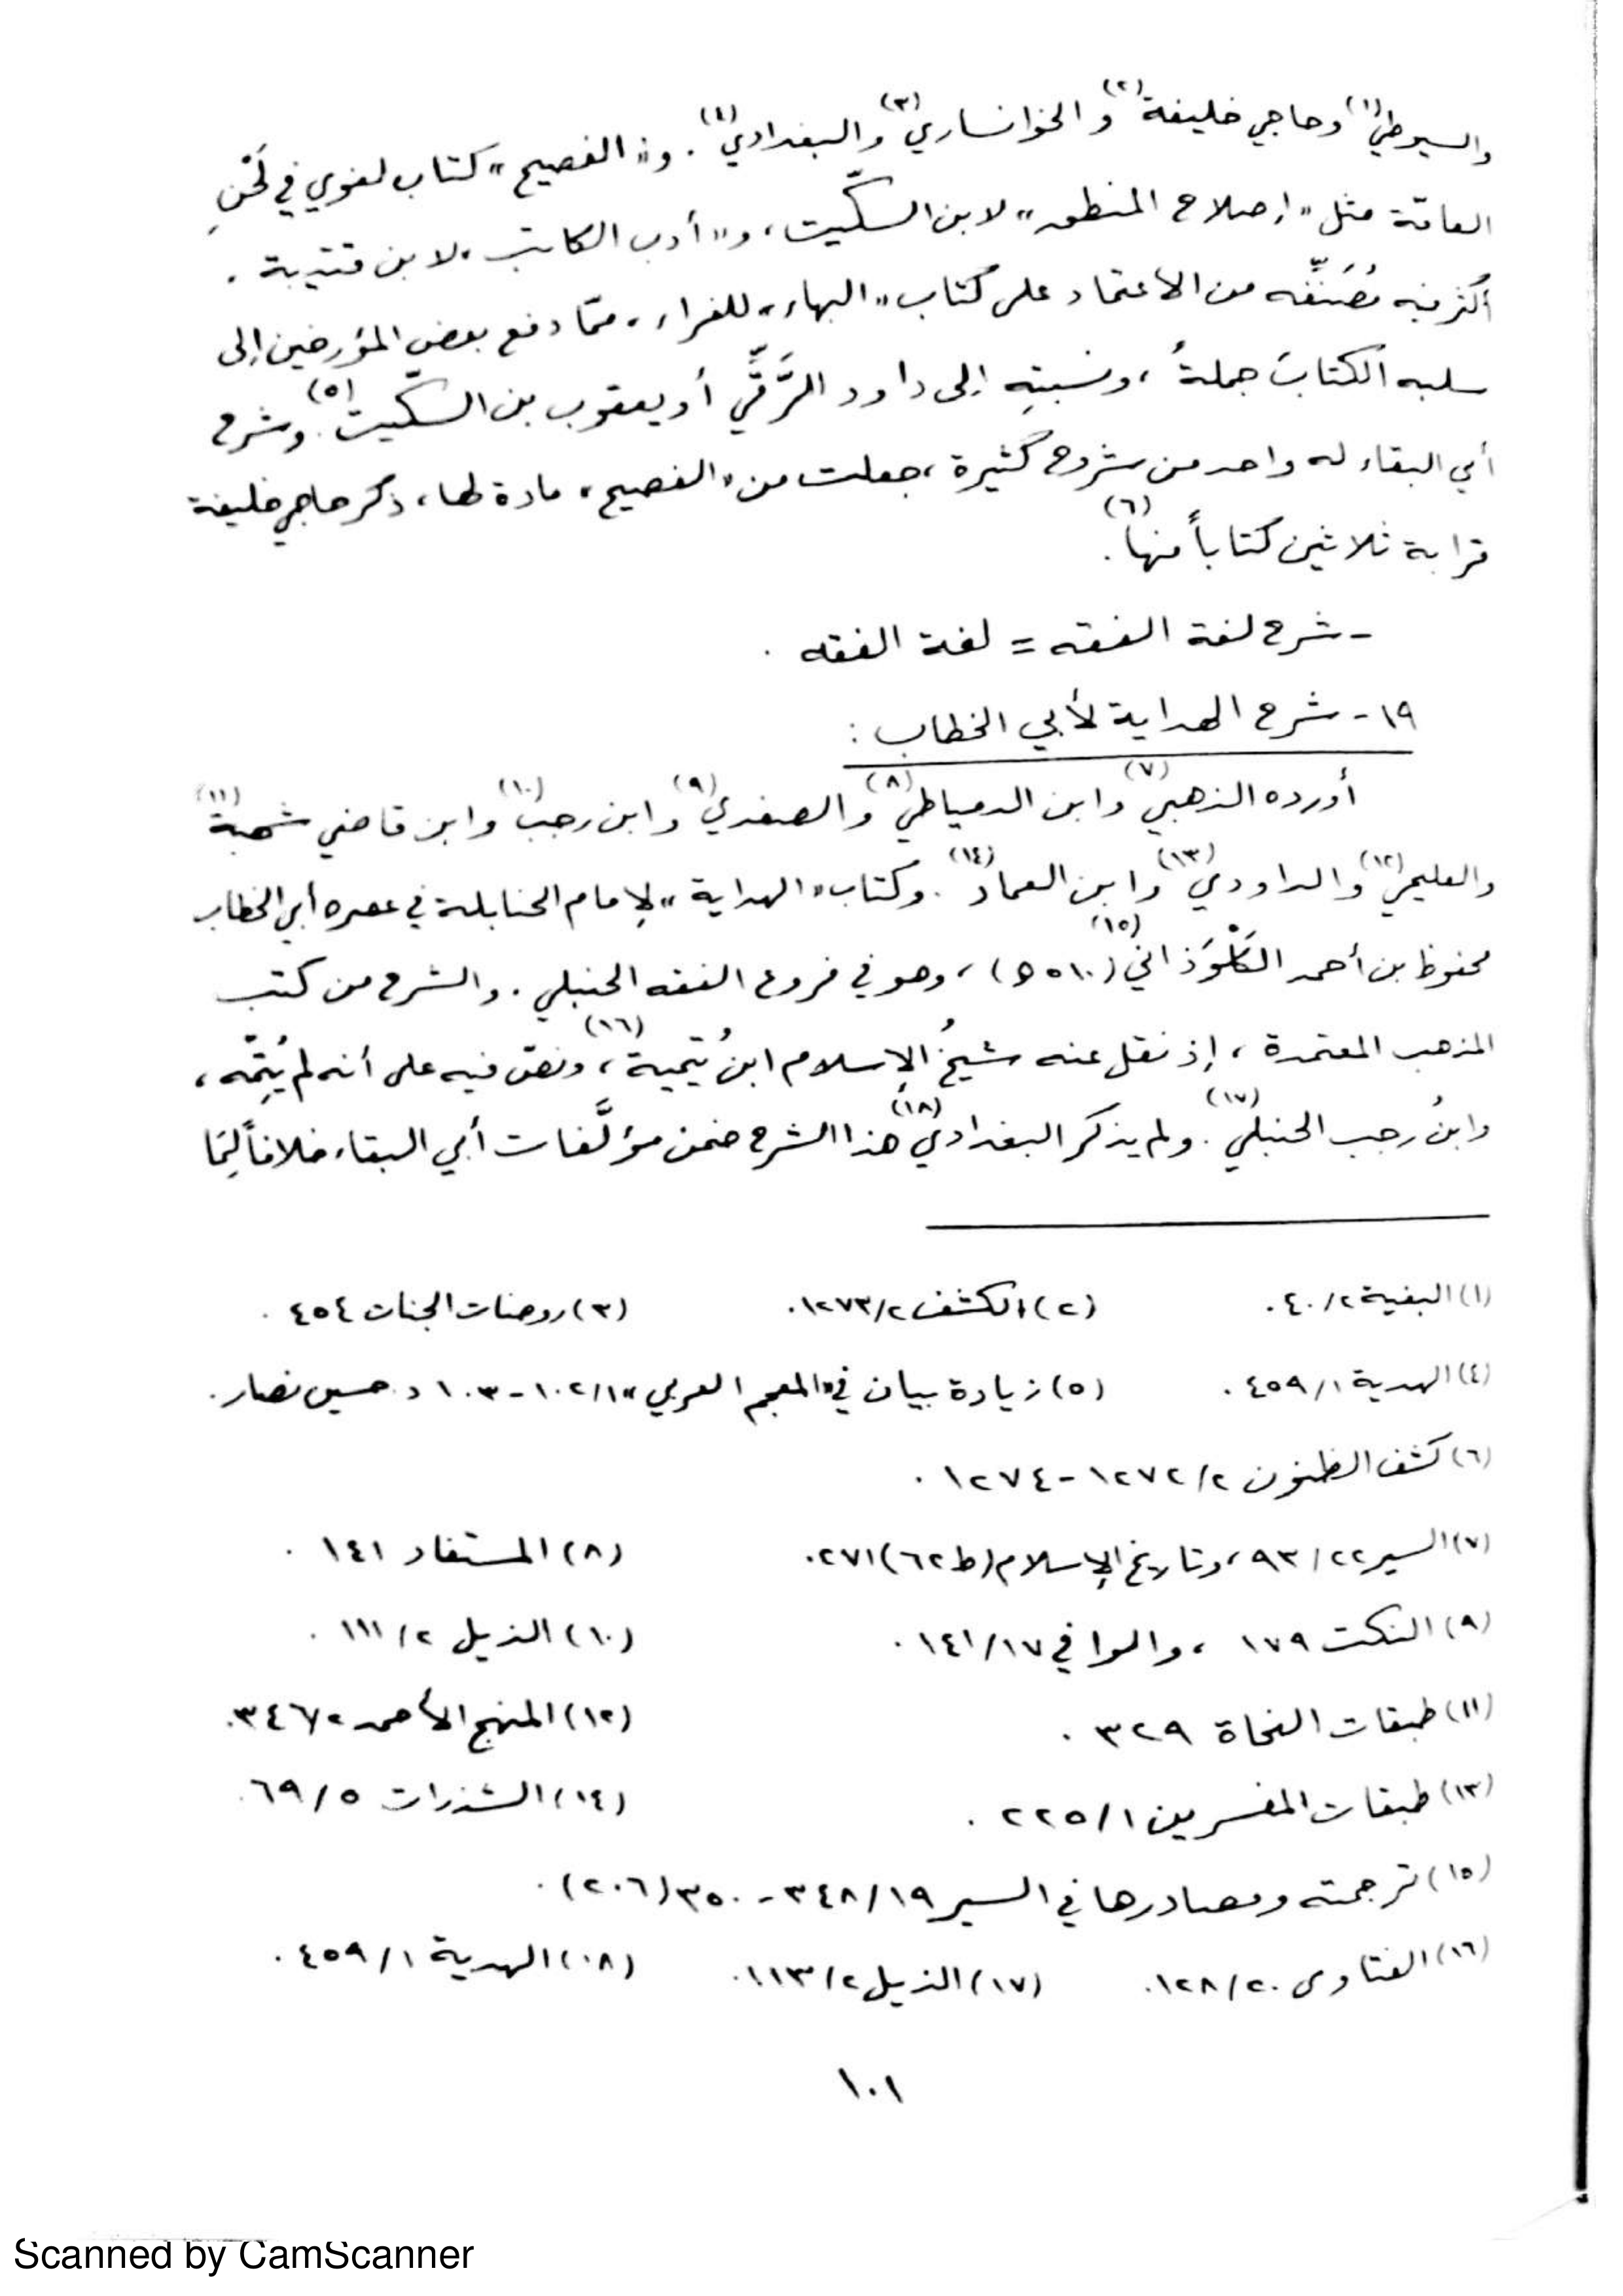 والسيوطي(١) وحاجي خليفة(٢) والخوانساري(٣) والبغدادي(٤). و«الفصيح» كتاب لغوي في لَحْنِ
العامّة مثل «إصلاح المنطق» لابن السكّيت، و«أدب الكاتب» لابن قتيبة.
أكثر فيه مُصَنِّفه من الاعتماد على كتاب «البهاء» للفراء، ممّا دفع بعض المؤرخين إلى
سلبه الكتابَ جملةً، ونسبتِه إلى داود الرَّقِّي أو يعقوب بن السكّيت(٥). وشرح
أبي البقاء له واحد من شروح كثيرة، جعلت من «الفصيح» مادة لها، ذكر حاجي خليفة
قرابة ثلاثين كتاباً منها(٦).
- شرح لغة الفقه = لغة الفقه .
١٩- شرح الهداية لأبي الخطاب :
أورده الذهبي(٧) وابن الدمياطي(٨) والصفدي(٩) وابن رجب(١٠) وابن قاضي شهبة(١١)
والعليمي(١٢) والداودي(١٣) وابن العماد(١٤). وكتاب «الهداية» لإمام الحنابلة في عصره أبي الخطاب
محفوظ بن أحمد الكَلْوَذاني(١٥) (٥١٠ هـ)، وهو في فروع الفقه الحنبلي. والشرح من كتب
المذهب المعتمدة، إذ نقل عنه شيخُ الإسلام ابنُ تيمية(١٦)، ونصّ فيه على أنه لم يُتِمّه،
وابنُ رجب الحنبلي(١٧). ولم يذكر البغدادي(١٨) هذا الشرح ضمن مؤلَّفات أبي البقاء خلافاً لِمَا
(١) البغية ٤٠/٢. (٢) الكشف ١٢٧٣/٢. (٣) روضات الجنات ٤٥٤ .
(٤) الهدية ٤٥٩/١ . (٥) زيادة بيان في «المعجم العربي» ١٠٢/١-١٠٣ د. حسين نصار.
(٦) كشف الظنون ١٢٧٢/٢-١٢٧٤ .
(٧) السير ٩٣/٢٢، وتاريخ الإسلام (ط ٦٢) ٢٧١. (٨) المستفاد ١٤١ .
(٩) النكت ١٧٩ ، والوافي ١٤١/١٧. (١٠) الذيل ١١١/٢ .
(١١) طبقات النحاة ٣٢٩ . (١٢) المنهج الأحمد ٣٤٦/٢.
(١٣) طبقات المفسرين ٢٢٥/١ . (١٤) الشذرات ٦٩/٥.
(١٥) ترجمته ومصادرها في السير ٣٤٨/١٩-٣٥٠ (٢٠٦).
(١٦) الفتاوى ١٢٨/٢٠. (١٧) الذيل ١١٣/٢. (١٨) الهدية ٤٥٩/١ .
١٠١
Scanned by CamScanner